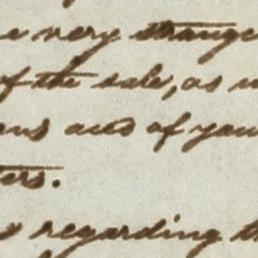 very strange
of the sale, as
and of your
ters.
regarding th